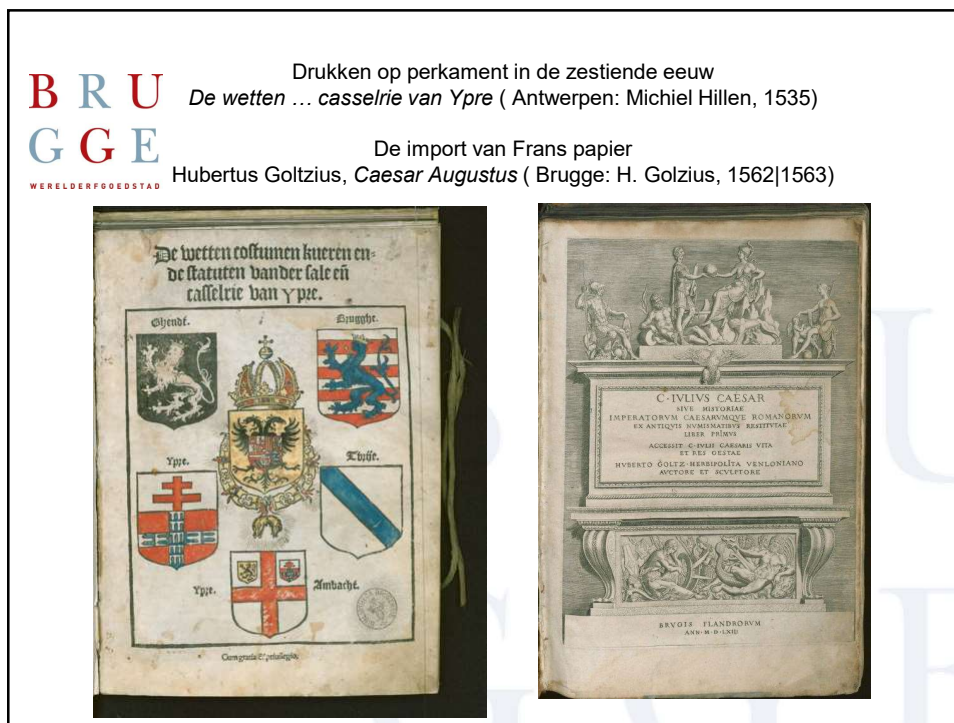 BRU
GGE
WERELDERFGOEDSTAD
Drukken op perkament in de zestiende eeuw
De wetten … casselrie van Ypre ( Antwerpen: Michiel Hillen, 1535)
De import van Frans papier
Hubertus Goltzius, Caesar Augustus ( Brugge: H. Golzius, 1562|1563)
De wetten costumen kueren en-
de statuten vander sale en̄
casselrie van Ypre.
Ghendt.
Brugghe.
Ypre.
Tvrije.
Ypre.
Ambacht.
Cum gratia & privilegio.
C·IVLIVS CAESAR
SIVE HISTORIAE
IMPERATORVM CAESARVMQVE ROMANORVM
EX ANTIQVIS NVMISMATIBVS RESTITVTAE
LIBER PRIMVS
ACCESSIT C·IVLII CAESARIS VITA
ET RES GESTAE
HVBERTO GOLTZ·HERBIPOLITA VENLONIANO
AVCTORE ET SCVLPTORE
BRVGIS FLANDRORVM
ANN·M·D·LXIII